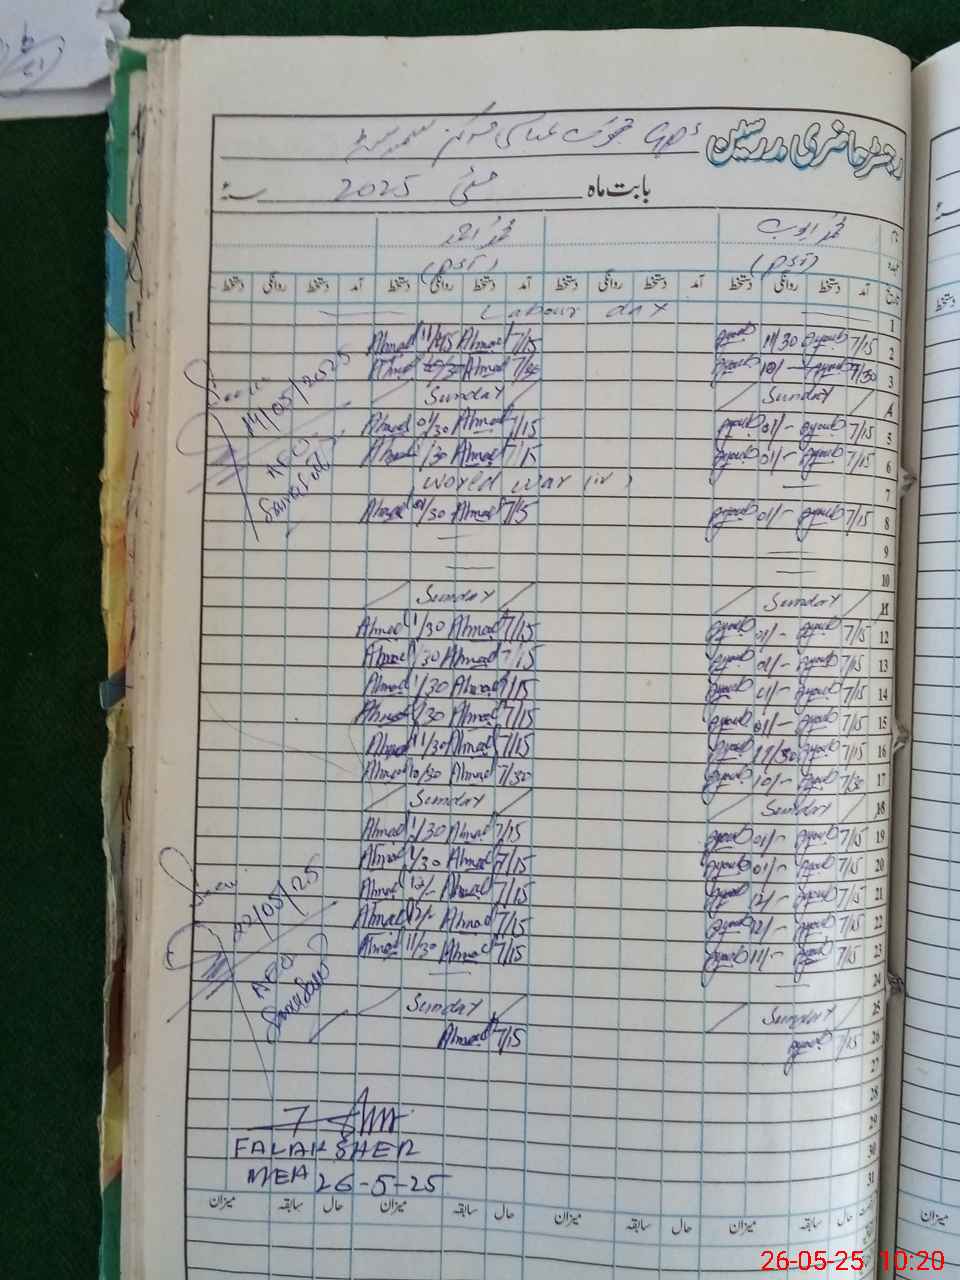 رجسٹر حاضری مدرسین GPS
بابت ماہ مئی 2025 سنہ
(PST) (PST)
آمد دستخط روانگی دستخط آمد دستخط روانگی دستخط آمد دستخط روانگی دستخط آمد دستخط روانگی دستخط
1 Labour day
2 7/15 Ayoub 11/30 Ayoub 7/15 Ahmad 11/45 Ahmad
3 7/30 Ayoub 10/- Ayoub 7/30 Ahmad 10/30 Ahmad
4 Sunday Sunday
5 7/15 Ayoub 01/- Ayoub 7/15 Ahmad 01/30 Ahmad
6 7/15 Ayoub 01/- Ayoub 7/15 Ahmad 1/30 Ahmad
7 World War
8 7/15 Ayoub 01/- Ayoub 7/15 Ahmad 01/30 Ahmad
9
10
11 Sunday Sunday
12 7/15 Ayoub 01/- Ayoub 7/15 Ahmad 1/30 Ahmad
13 7/15 Ayoub 01/- Ayoub 7/15 Ahmad 1/30 Ahmad
14 7/15 Ayoub 01/- Ayoub 7/15 Ahmad 1/30 Ahmad
15 7/15 Ayoub 01/- Ayoub 7/15 Ahmad 1/30 Ahmad
16 7/15 Ayoub 11/30 Ayoub 7/15 Ahmad 11/30 Ahmad
17 7/30 Ayoub 10/- Ayoub 7/30 Ahmad 10/30 Ahmad
18 Sunday Sunday
19 7/15 Ayoub 01/- Ayoub 7/15 Ahmad 1/30 Ahmad
20 7/15 Ayoub 01/- Ayoub 7/15 Ahmad 1/30 Ahmad
21 7/15 Ayoub 12/- Ayoub 7/15 Ahmad 12/- Ahmad
22 7/15 Ayoub 12/- Ayoub 7/15 Ahmad 12/- Ahmad
23 7/15 Ayoub 11/- Ayoub 7/15 Ahmad 11/30 Ahmad
24
25 Sunday Sunday
26 7/15 Ayoub 7/15 Ahmad
27
28
29
30
31
14/05/2025
AEO
22/05/25
AEO
FALAK SHER
MEA 26-5-25
حال سابقہ میزان حال سابقہ میزان حال سابقہ میزان حال سابقہ میزان
میزان
26-05-25 10:20